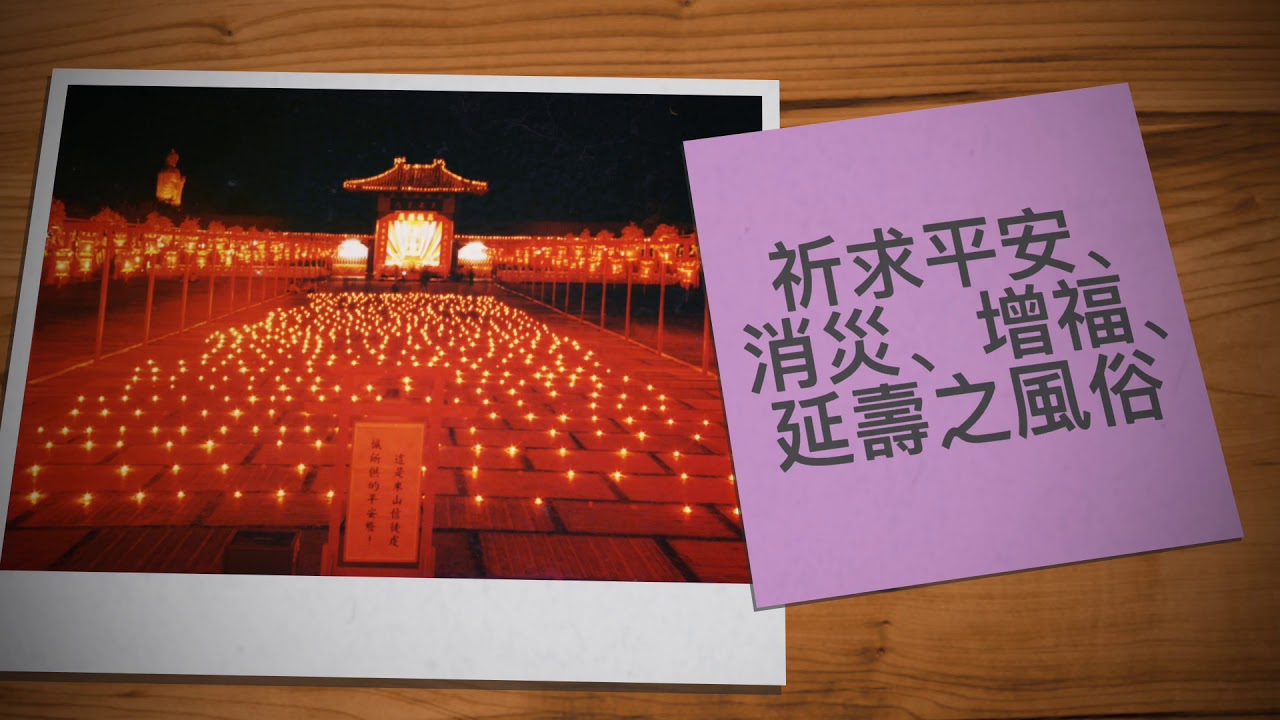 祈求平安、
消災、增福、
延壽之風俗
這是本山信徒虔
誠所供的平安燈！